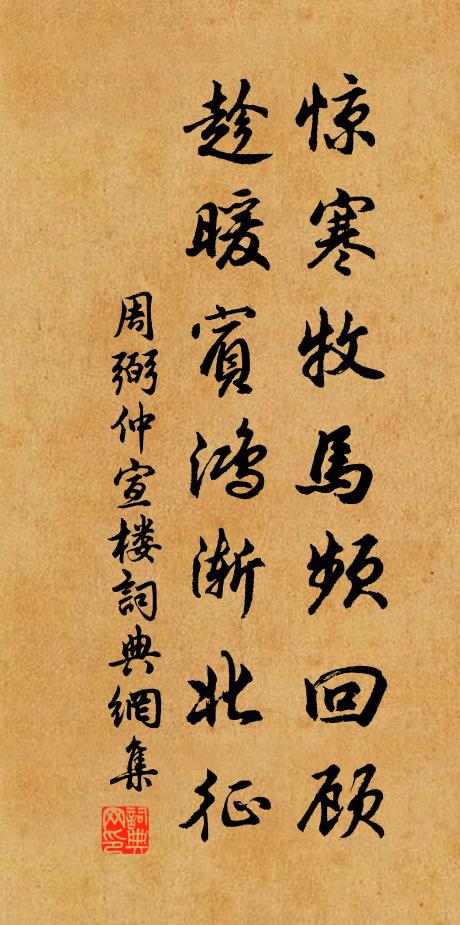 惊寒牧马频回顾
趁暖宾鸿渐北征
周弼仲宣楼詞典網集
詞典网印